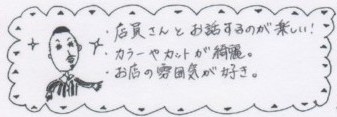 ・店員さんとお話するのが楽しい!
・カラーやカットが綺麗。
・お店の雰囲気が好き。